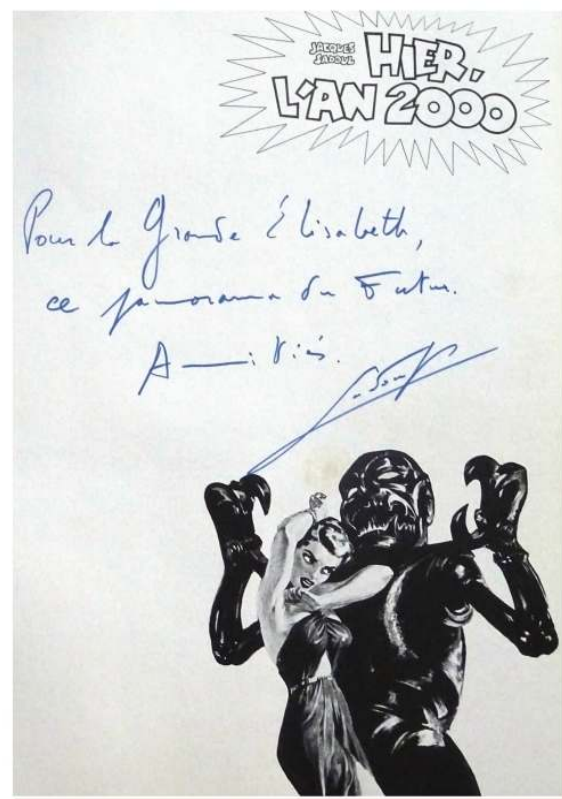 JACQUES
SADOUL
HIER,
L'AN 2000
Pour la Grande Élisabeth,
ce panorama du Futur.
Amitiés.
Sadoul